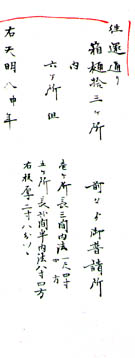 往還通り
箱樋拾三ヶ所
前々より御普請所
内
六ヶ所 但
壱ヶ所長三間内法一尺四寸四方
五ヶ所長弐間半内法八寸四方
右板厚二寸八分ツヽ
右天明八申年